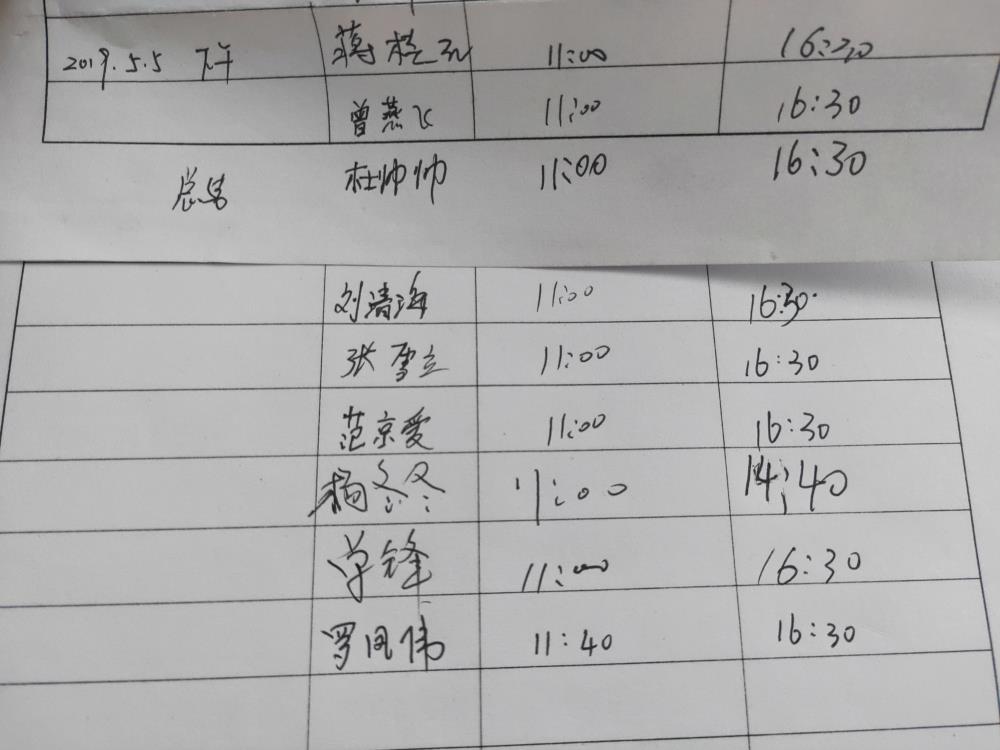 2019.5.5 下午 蒋 11:00 16:30
曾燕飞 11:00 16:30
杜帅帅 11:00 16:30
刘清海 11:00 16:30
张雪立 11:00 16:30
范京爱 11:00 16:30
杨冬冬 11:00 14:40
单锋 11:00 16:30
罗凤伟 11:40 16:30